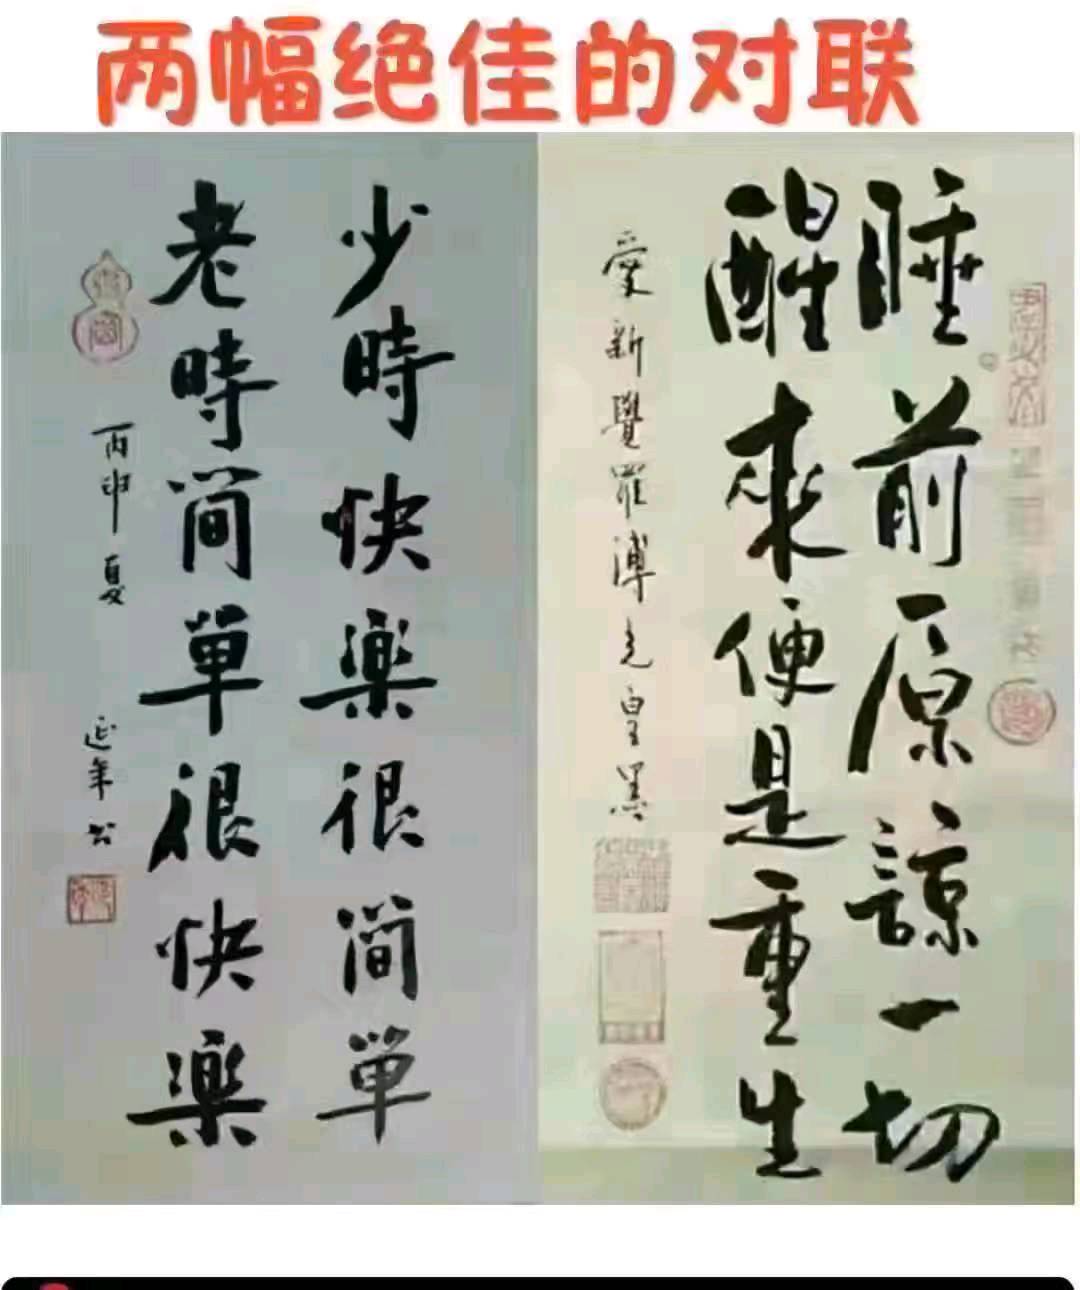 两幅绝佳的对联
睡前原諒一切
醒來便是重生
愛新覺羅溥
少時快樂很簡單
老時簡單很快樂
丙申夏
延年